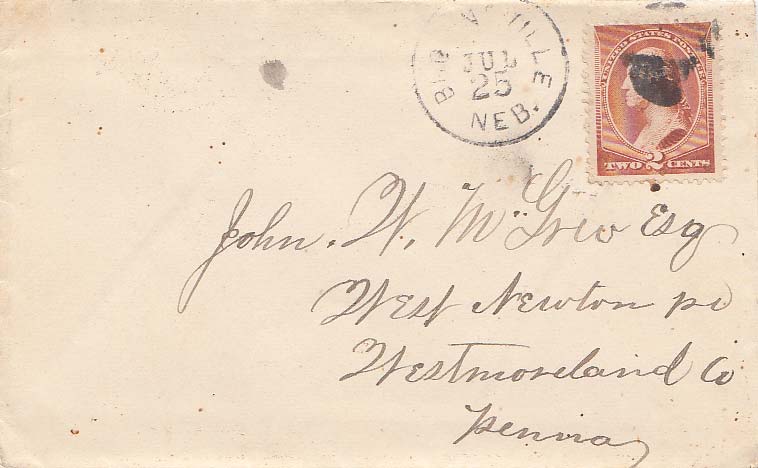 B   VILLE
JUL
25
NEB.
UNITED STATES POSTAGE
TWO 2 CENTS
John. W. Mc Grew Esq
West Newton
Westmoreland Co
Penna